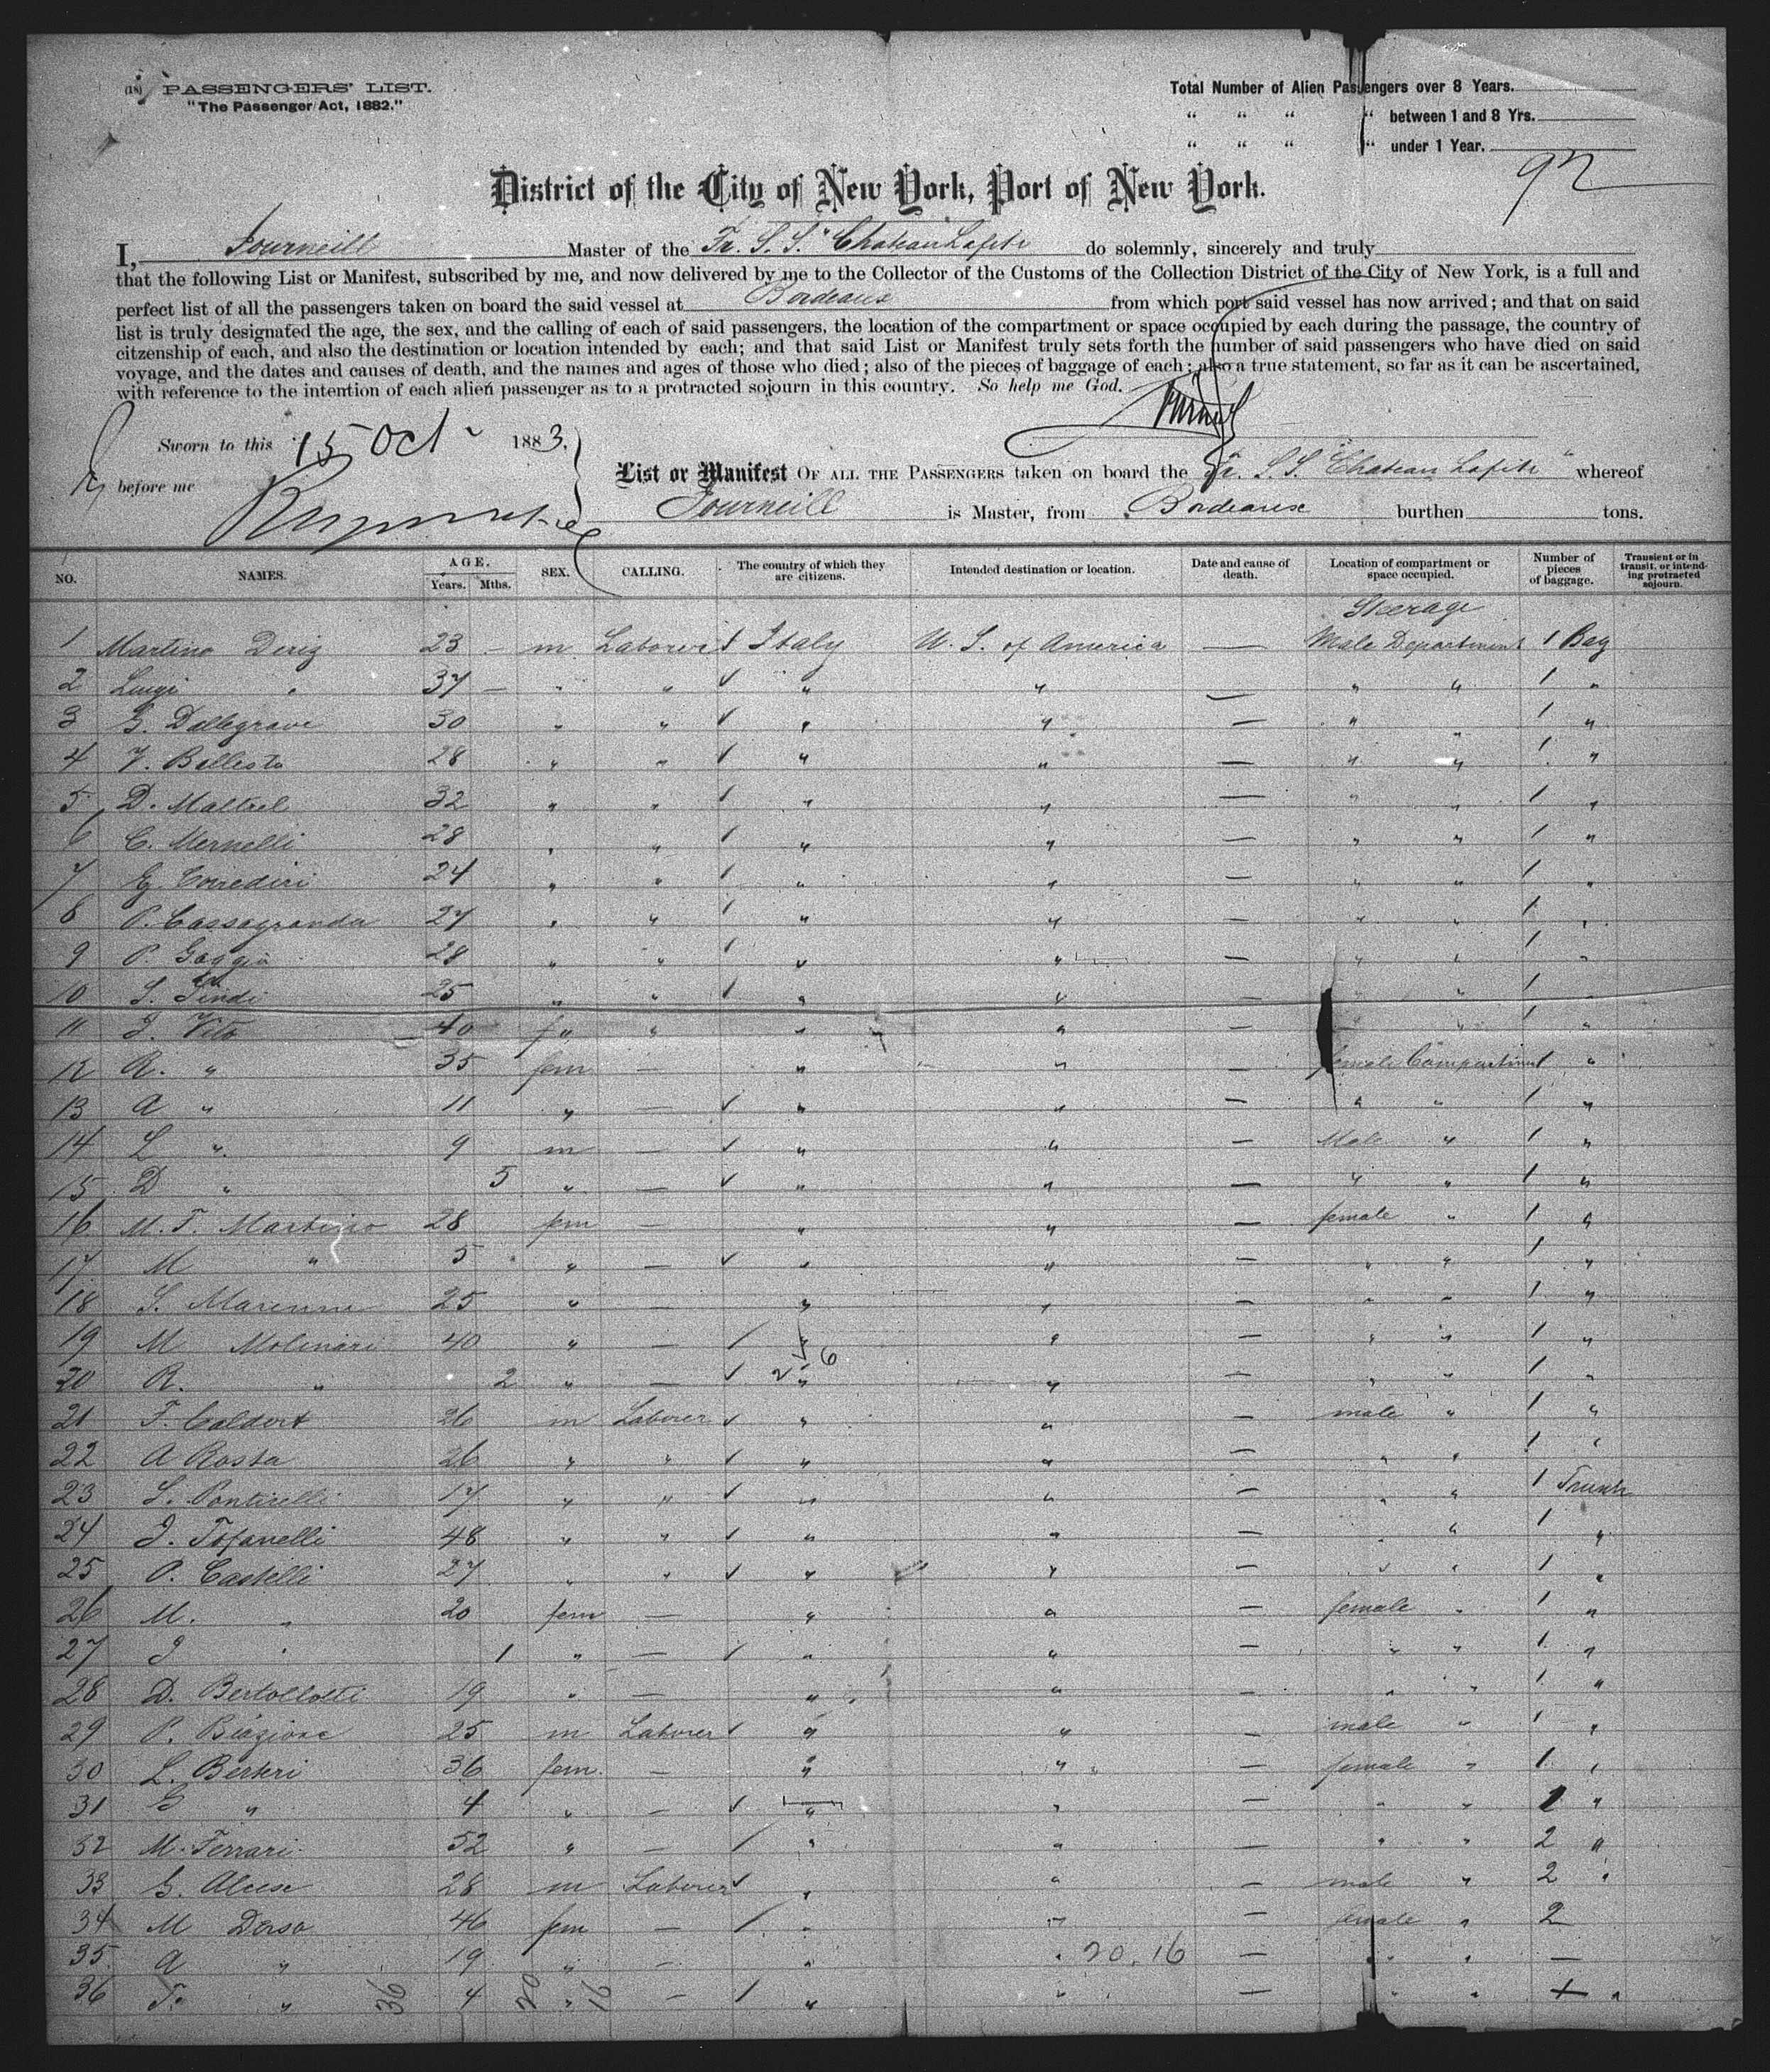 (18) PASSENGERS' LIST.
"The Passenger Act, 1882."
Total Number of Alien Passengers over 8 Years.
" " " " between 1 and 8 Yrs.
" " " " under 1 Year.
92
District of the City of New York, Port of New York.
I, Journeill Master of the Fr. S. S. "Chateau Lafite do solemnly, sincerely and truly
that the following List or Manifest, subscribed by me, and now delivered by me to the Collector of the Customs of the Collection District of the City of New York, is a full and
perfect list of all the passengers taken on board the said vessel at Bordeaux from which port said vessel has now arrived; and that on said
list is truly designated the age, the sex, and the calling of each of said passengers, the location of the compartment or space occupied by each during the passage, the country of
citzenship of each, and also the destination or location intended by each; and that said List or Manifest truly sets forth the number of said passengers who have died on said
voyage, and the dates and causes of death, and the names and ages of those who died; also of the pieces of baggage of each; also a true statement, so far as it can be ascertained,
with reference to the intention of each alien passenger as to a protracted sojourn in this country. So help me God.
Sworn to this 15 Oct 1883.
before me
List or Manifest OF ALL THE PASSENGERS taken on board the Fr. S. S. "Chateau Lafite" whereof
Journeill is Master, from Bordeaux burthen tons.
NO. NAMES. AGE. Years. Mths. SEX. CALLING. The country of which they are citizens. Intended destination or location. Date and cause of death. Location of compartment or space occupied. Number of pieces of baggage. Transient or in transit, or intending protracted sojourn.
Steerage
1 Martino Deriz 23 — m Laborer / Italy U. S. of America — Male Department 1 Bag
2 Luigi " 37 — " " ✓ " " — " " 1 "
3 G. Dallegrave 30 " " ✓ " " — " " 1 "
4 V. Ballesto 28 " " ✓ " " — " " 1 "
5 D. Maltrel 32 " " / " " — " " 1 "
6 C. Mernelli 28 " " / " " — " " 1 "
7 G. Corrediri 24 " " / " " — " " 1 "
8 P. Cassagranda 27 " " / " " — " " 1 "
9 P. Goggia 28 " " / " " — " " 1 "
10 S. Tindi 25 " " / " " — " " 1 "
11 J. Vito 40 " " " " — " " 1 "
12 R. " 35 fem — " " — female Compartment 1 "
13 A " 11 " — ✓ " " — " " 1 "
14 L " 9 m — ✓ " " — Male " 1 "
15 D " 5 " — ✓ " " — " " 1 "
16 M. T. Martino 28 fem — " " — female " 1 "
17 M " 5 " — ✓ " " — " " 1 "
18 S. Marenna 25 " — " " — " " 1 "
19 M Molinari 40 " — / " " — " " 1 "
20 R. " 2 " — ✓ " " — " " 1 "
21 F. Caldert 26 m Laborer ✓ " " — male " 1 "
22 A Rosta 26 " " ✓ " " — " " 1 "
23 L. Pontirelli 17 " " ✓ " " — " " 1 Trunk
24 J. Tofanelli 48 " " ✓ " " — " " 1 "
25 P. Castelli 27 " " ✓ " " — " " 1 "
26 M. " 20 fem — " " — female " 1 "
27 J " 1 " — / " " — " " 1 "
28 D. Bertollotti 19 " — " " — " " 1 "
29 P. Biagione 25 m Laborer ✓ " " — male " 1 "
30 L. Berteri 36 fem. — " " — female " 1 "
31 G " 4 " — ✓ " " — " " 1 "
32 M. Ferrari 52 " — / " " — " " 2 "
33 G. Aleese 28 m Laborer ✓ " " — male " 2 "
34 M Dorso 46 fem — / " " — female " 2
35 A " 19 " — " " 20.16 — " " —
36 F. " 36 4 20 " 16 — / " " — " " + "